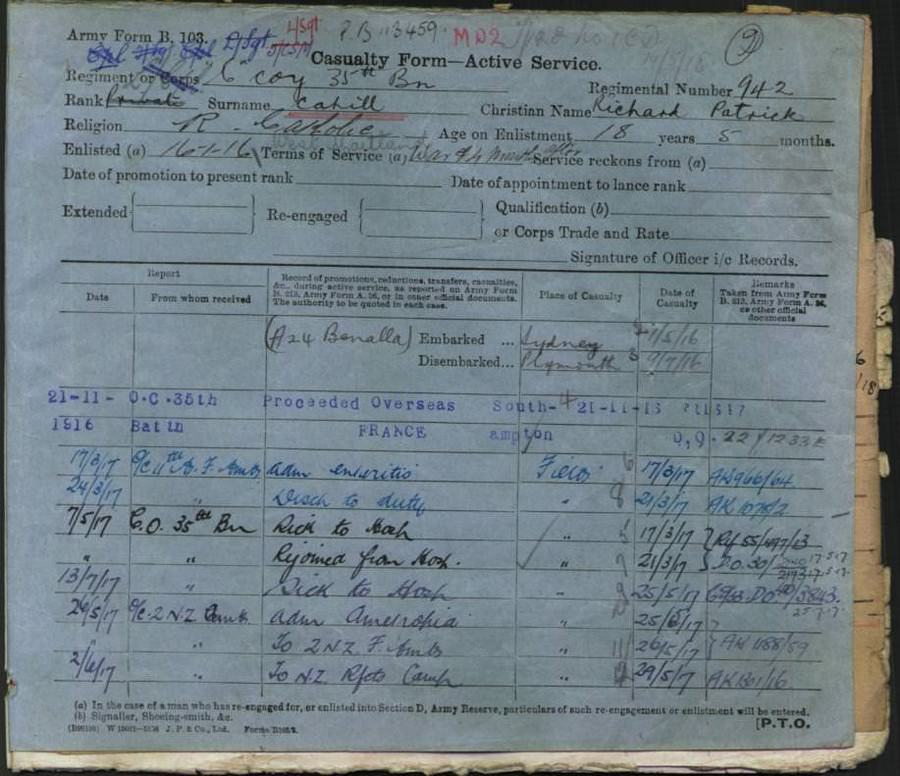 Army Form B. 103.
L/Sgt
P.B 113459
MD2
Cpl Cpl L/Sgt
Casualty Form—Active Service.
Regiment or Corps C coy 35th Bn Regimental Number 942
Rank Private Surname Cahill Christian Name Richard Patrick
Religion R. Catholic Age on Enlistment 18 years 5 months.
Enlisted (a) 16-1-16 West Maitland Terms of Service (a) War & 4 months after Service reckons from (a)
Date of promotion to present rank Date of appointment to lance rank
Extended Re-engaged Qualification (b)
or Corps Trade and Rate
Signature of Officer i/c Records.
Report
Date From whom received Record of promotions, reductions, transfers, casualties, &c., during active service, as reported on Army Form B. 213, Army Form A. 36, or in other official documents. The authority to be quoted in each case. Place of Casualty Date of Casualty Remarks Taken from Army Form B. 213, Army Form A. 36, or other official documents
(A24 Benalla) Embarked ... Sydney 1/5/16
Disembarked... Plymouth 9/7/16
21-11- O.C.35th Proceeded Overseas South- 21-11-16
1916 Battn FRANCE ampton
17/3/17 O/C 11th A. F. Amb adm enteritis Field 17/3/17 AK966/64
24/3/17 " Disch to duty " 21/3/17 AK 1078/2
7/5/17 C.O. 35th Bn Sick to Hosp " 17/3/17
" " Rejoined from Hosp. " 21/3/17 D.O. 30
13/7/17 " Sick to Hosp " 25/5/17
29/5/17 O/C 2 N.Z. Amb adm Ametropia " 25/5/17
" " To 2 N.Z. F. Amb " 26/5/17 AK 1188/59
2/6/17 " To N.Z. Rfts Camp " 29/5/17 AK1301/16
(a) In the case of a man who has re-engaged for, or enlisted into Section D, Army Reserve, particulars of such re-engagement or enlistment will be entered.
(b) Signaller, Shoeing-smith, &c.
[P.T.O.
J. P. & Co., Ltd.